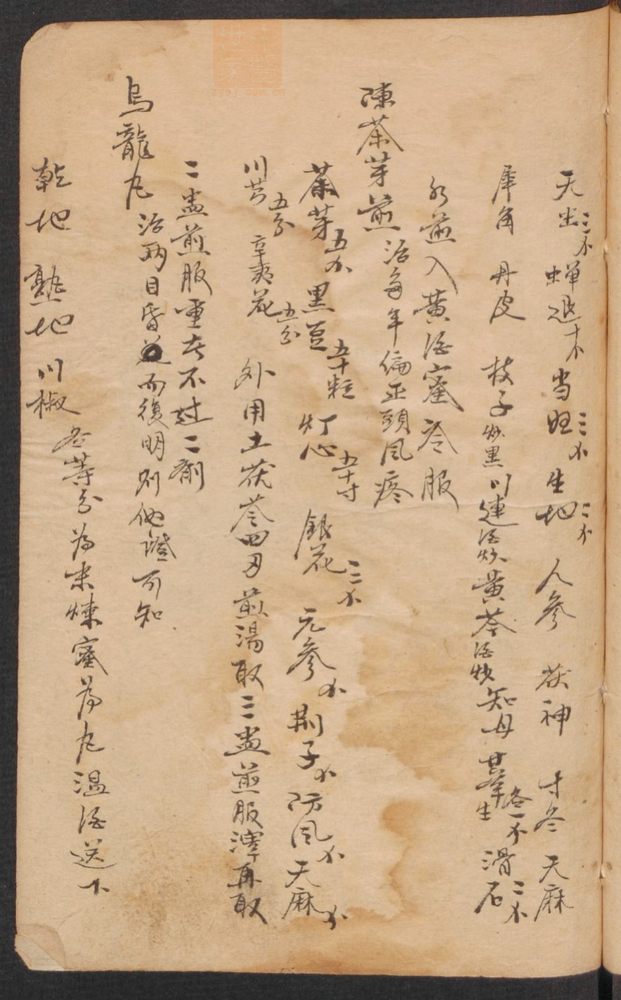 天虫三个 蟬退十个 当归三个 生地二个 人參 茯神 寸冬 天麻
犀角 丹皮 枝子炒黑 川連酒炒 黃芩酒炒 知母 甘草生各一个 滑石二个
水煎入黃酒蜜冷服
陳茶芽煎 治每年偏正頭風疼
茶芽五个 黑豆五十粒 灯心五十寸 銀花三个 元參个 荆子个 防風个 天麻个
川芎五分 辛夷花五分 外用土茯苓四刃 煎湯取三盅煎服滓再取
二盅煎服重者不过二劑
烏龍丸 治两目昏而復明别他證可知
乾地 熟地 川椒 各等分为末煉蜜为丸温酒送下